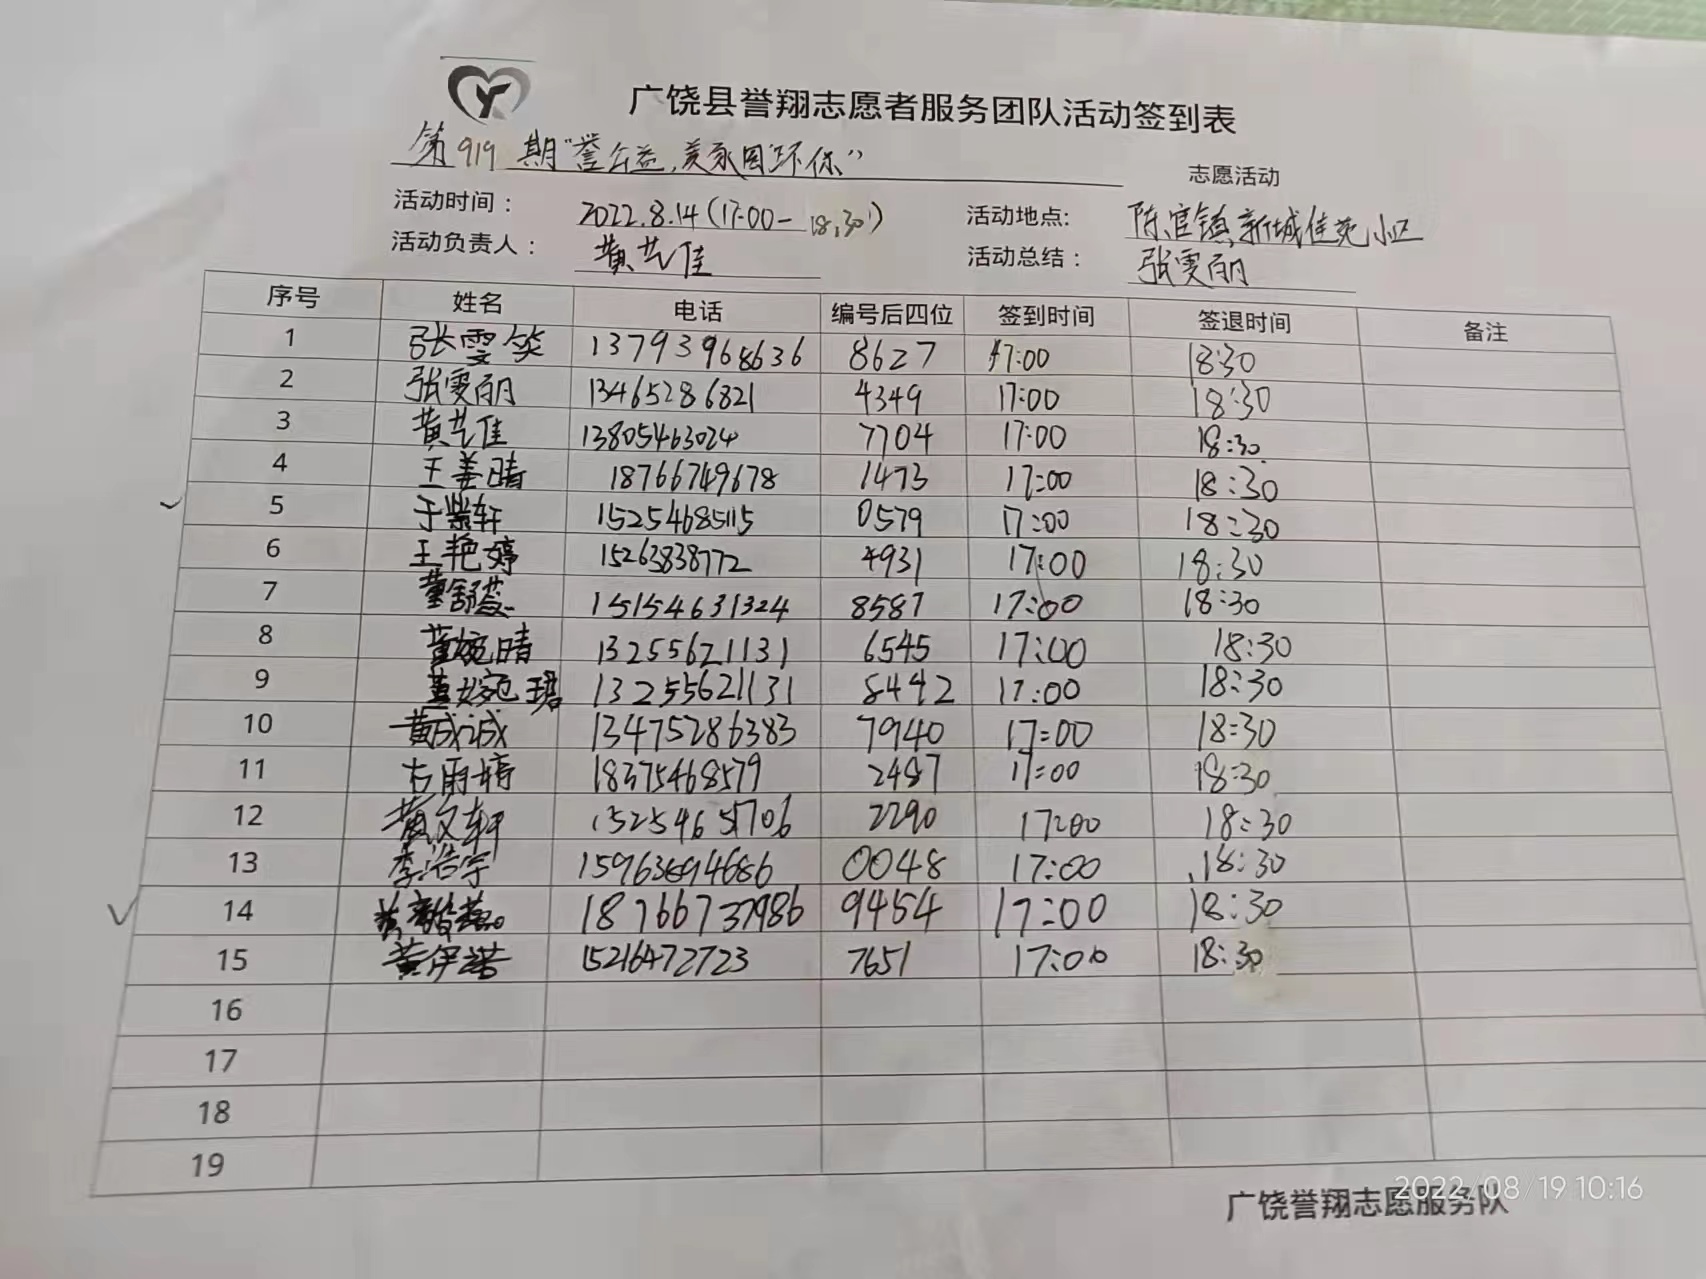 广饶县誉翔志愿者服务团队活动签到表
第919期"誉公益,美家园环保" 志愿活动
活动时间: 2022.8.14(17:00-18:30) 活动地点: 陈官镇新城佳苑小区
活动负责人: 黄艺佳 活动总结: 张雯丽
序号 姓名 电话 编号后四位 签到时间 签退时间 备注
1 张雯笑 13793968636 8627 17:00 18:30
2 张雯丽 13465286821 4349 17:00 18:30
3 黄艺佳 13805463024 7704 17:00 18:30
4 王姜晴 18766749678 1473 17:00 18:30
5 于紫轩 15254685115 0579 17:00 18:30
6 王艳婷 15263838772 4931 17:00 18:30
7 15154631324 8587 17:00 18:30
8 黄婉晴 13255621131 6545 17:00 18:30
9 黄婉珺 13255621131 8442 17:00 18:30
10 黄成诚 13475286383 7940 17:00 18:30
11 古雨婷 18375468579 2487 17:00 18:30
12 黄文轩 15254651706 2290 17:00 18:30
13 李浩宇 15963694686 0048 17:00 18:30
14 18766737986 9454 17:00 18:30
15 黄伊诺 15216472723 7651 17:00 18:30
16
17
18
19
广饶誉翔志愿服务队
2022/08/19 10:16